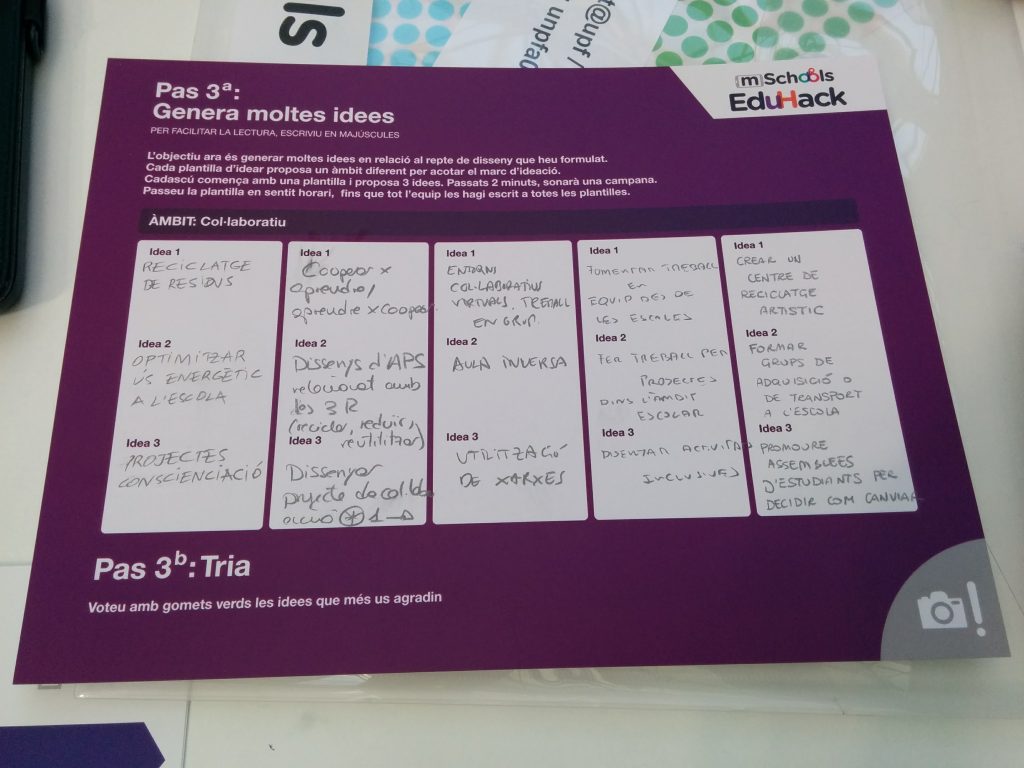 ls
t@upf /
unpfa
[m]Schools
EduHack
Pas 3ª:
Genera moltes idees
PER FACILITAR LA LECTURA, ESCRIVIU EN MAJÚSCULES
L'objectiu ara és generar moltes idees en relació al repte de disseny que heu formulat.
Cada plantilla d'idear proposa un àmbit diferent per acotar el marc d'ideació.
Cadascú comença amb una plantilla i proposa 3 idees. Passats 2 minuts, sonarà una campana.
Passeu la plantilla en sentit horari, fins que tot l'equip les hagi escrit a totes les plantilles.
ÀMBIT: Col·laboratiu
Idea 1
RECICLATGE
DE RESIDUS
Idea 2
OPTIMITZAR
ÚS ENERGÈTIC
A L'ESCOLA
Idea 3
PROJECTES
CONSCIENCIACIÓ
Idea 1
Cooperar x
aprendre/
aprendre x cooperar
Idea 2
Dissenys d'APS
relacionat amb
les 3 R
(reciclar, reduir,
reutilitzar)
Idea 3
Dissenyar
projecte de col·labo
ració * 1 →
Idea 1
ENTORNS
COL·LABORATIUS
VIRTUALS. TREBALL
EN GRUP.
Idea 2
AULA INVERSA
Idea 3
UTILITZACIÓ
DE XARXES
Idea 1
FOMENTAR TREBALL
EN
EQUIP DES DE
LES ESCOLES
Idea 2
FER TREBALL PER
PROJECTES
DINS L'ÀMBIT
ESCOLAR
Idea 3
DISENYAR ACTIVITATS
INCLUSIVES
Idea 1
CREAR UN
CENTRE DE
RECICLATGE
ARTISTIC
Idea 2
FORMAR
GRUPS DE
ADQUISICIÓ O
DE TRANSPORT
A L'ESCOLA
Idea 3
PROMOURE
ASSEMBLEES
D'ESTUDIANTS PER
DECIDIR COM CANVIAR
Pas 3ᵇ: Tria
Voteu amb gomets verds les idees que més us agradin
!